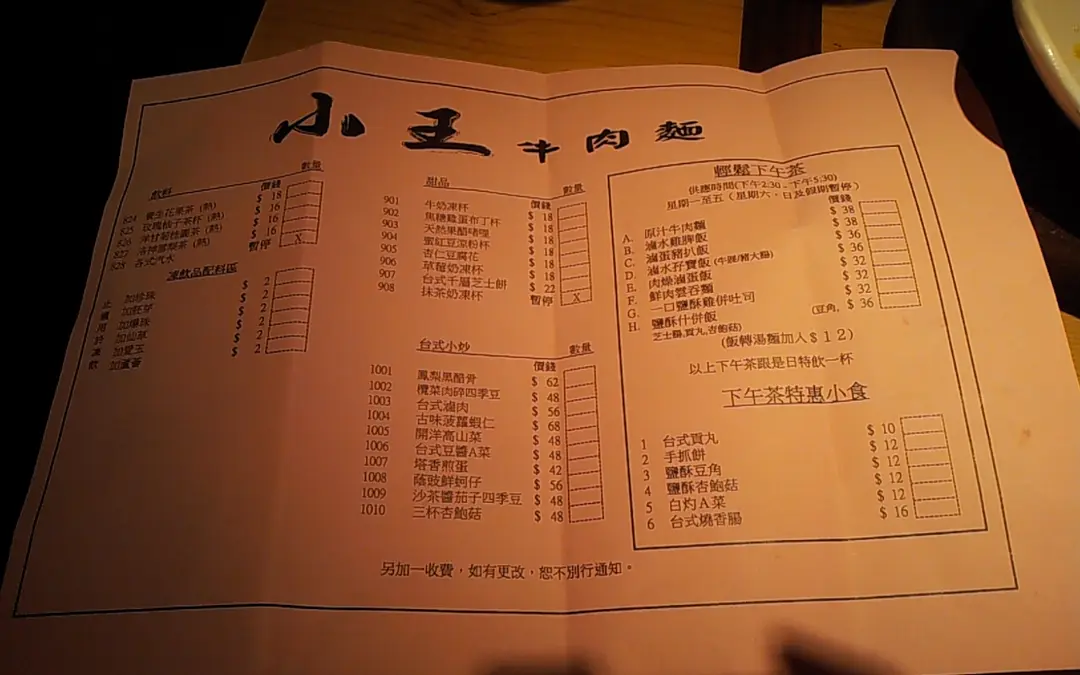 小王牛肉麵
飲料 價錢 數量
824 養生花果茶 (熱) $ 18
825 玫瑰柚子茶杯 (熱) $ 16
826 洋甘菊桂圓茶 (熱) $ 16
827 洛神蜜梨茶 (熱) $ 16
828 各式汽水 暫停 X
凍飲品配料區
加珍珠 $ 2
加胚芽 $ 2
加爆珠 $ 2
加仙草 $ 2
加愛玉 $ 2
加蘆薈
止適用於凍飲
甜品 價錢 數量
901 牛奶凍杯 $ 18
902 焦糖雞蛋布丁杯 $ 18
903 天然果醋啫喱 $ 18
904 蜜紅豆涼粉杯 $ 18
905 杏仁豆腐花 $ 18
906 草莓奶凍杯 $ 18
907 台式千層芝士餅 $ 22
908 抹茶奶凍杯 暫停 X
台式小炒 價錢 數量
1001 鳳梨黑醋骨 $ 62
1002 欖菜肉碎四季豆 $ 48
1003 台式滷肉 $ 56
1004 古味菠蘿蝦仁 $ 68
1005 開洋高山菜 $ 48
1006 台式豆醬A菜 $ 48
1007 塔香煎蛋 $ 42
1008 蔭豉鮮蚵仔 $ 56
1009 沙茶醬茄子四季豆 $ 48
1010 三杯杏鮑菇 $ 48
輕鬆下午茶
供應時間(下午2:30 - 下午5:30)
星期一至五（星期六，日及假期暫停）
價錢 數量
A. 原汁牛肉麵 $ 38
B. 滷水雞脾飯 $ 38
C. 滷蛋豬扒飯 $ 36
D. 滷水孖寶飯 (牛𦟌/豬大腸) $ 36
E. 肉燥滷蛋飯 $ 32
F. 鮮肉雲吞麵 $ 32
G. 一口鹽酥雞併吐司 $ 32
H. 鹽酥什併飯 (豆角, $ 36
芝士腸,貢丸,杏鮑菇)
(飯轉湯麵加入＄１２)
以上下午茶跟是日特飲一杯
下午茶特惠小食
1 台式貢丸 $ 10
2 手抓餅 $ 12
3 鹽酥豆角 $ 12
4 鹽酥杏鮑菇 $ 12
5 白灼Ａ菜 $ 12
6 台式燒香腸 $ 16
另加一收費，如有更改，恕不別行通知。